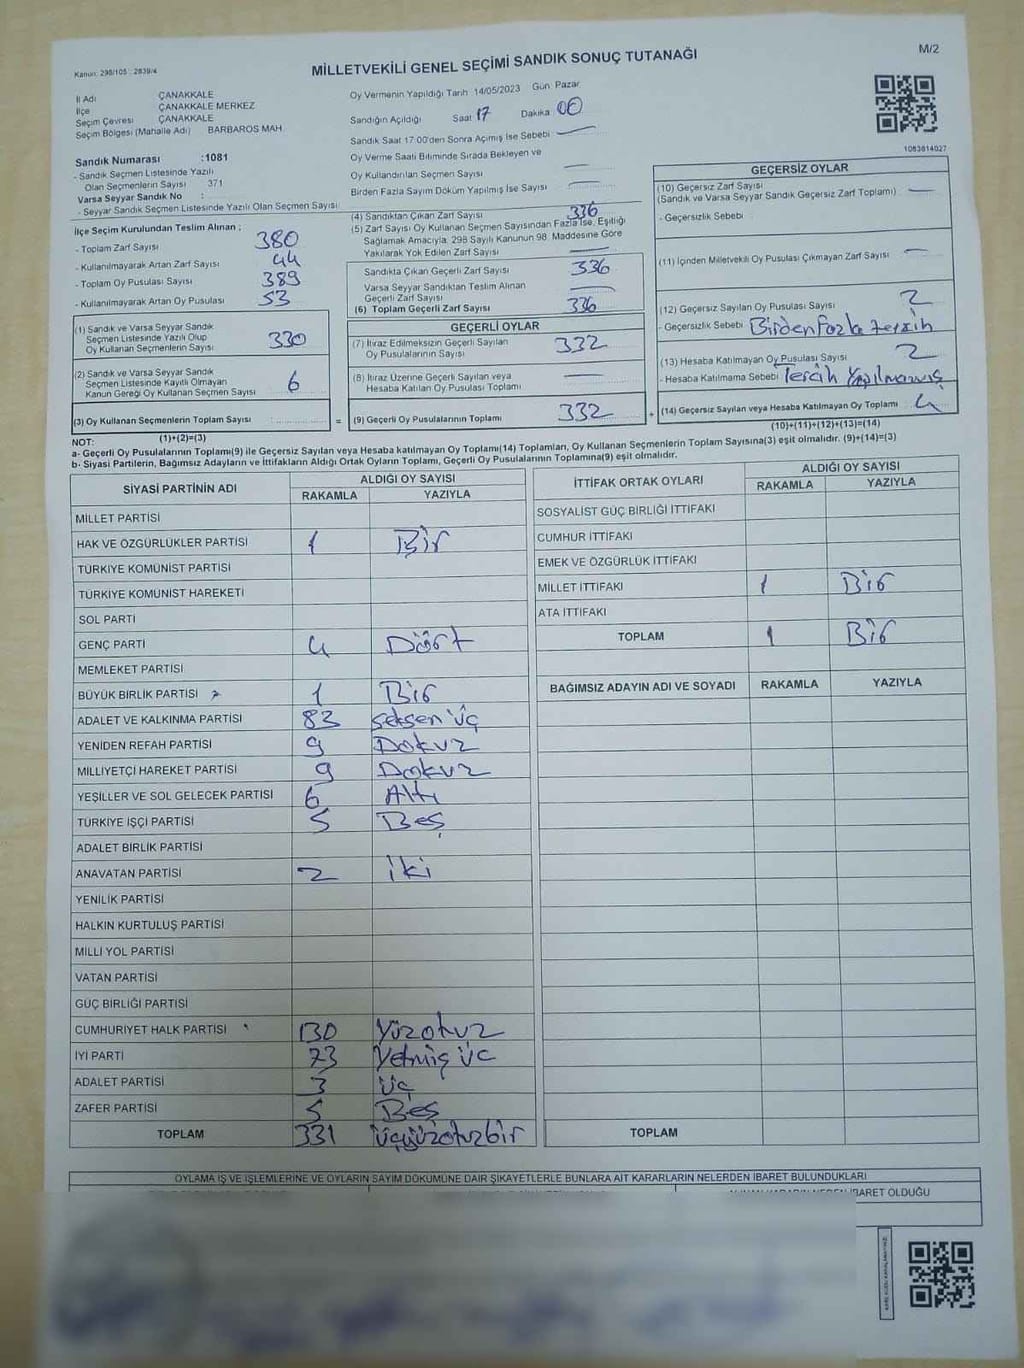 M/2
Kanun: 298/105 : 2839/4
MİLLETVEKİLİ GENEL SEÇİMİ SANDIK SONUÇ TUTANAĞI
İl Adı ÇANAKKALE
İlçe ÇANAKKALE MERKEZ
Seçim Çevresi ÇANAKKALE
Seçim Bölgesi (Mahalle Adı) BARBAROS MAH.
Sandık Numarası :1081
- Sandık Seçmen Listesinde Yazılı
Olan Seçmenlerin Sayısı 371
Varsa Seyyar Sandık No :
- Seyyar Sandık Seçmen Listesinde Yazılı Olan Seçmen Sayısı:
Oy Vermenin Yapıldığı Tarih 14/05/2023 Gün Pazar
Sandığın Açıldığı Saat 17 Dakika 00
Sandık Saat 17:00'den Sonra Açılmış İse Sebebi
Oy Verme Saati Bitiminde Sırada Bekleyen ve
Oy Kullandırılan Seçmen Sayısı
Birden Fazla Sayım Döküm Yapılmış İse Sayısı
1083814027
İlçe Seçim Kurulundan Teslim Alınan ;
- Toplam Zarf Sayısı 380
- Kullanılmayarak Artan Zarf Sayısı 44
- Toplam Oy Pusulası Sayısı 389
- Kullanılmayarak Artan Oy Pusulası 53
(1) Sandık ve Varsa Seyyar Sandık
Seçmen Listesinde Yazılı Olup
Oy Kullanan Seçmenlerin Sayısı 330
(2) Sandık ve Varsa Seyyar Sandık
Seçmen Listesinde Kayıtlı Olmayan
Kanun Gereği Oy Kullanan Seçmen Sayısı 6
(3) Oy Kullanan Seçmenlerin Toplam Sayısı =
(1)+(2)=(3)
(4) Sandıktan Çıkan Zarf Sayısı 336
(5) Zarf Sayısı Oy Kullanan Seçmen Sayısından Fazla İse, Eşitliği
Sağlamak Amacıyla, 298 Sayılı Kanunun 98. Maddesine Göre
Yakılarak Yok Edilen Zarf Sayısı
Sandıkta Çıkan Geçerli Zarf Sayısı 336
Varsa Seyyar Sandıktan Teslim Alınan
Geçerli Zarf Sayısı
(6) Toplam Geçerli Zarf Sayısı 336
GEÇERLİ OYLAR
(7) İtiraz Edilmeksizin Geçerli Sayılan
Oy Pusulalarının Sayısı 332
(8) İtiraz Üzerine Geçerli Sayılan veya
Hesaba Katılan Oy Pusulası Toplamı
(9) Geçerli Oy Pusulalarının Toplamı 332 +
GEÇERSİZ OYLAR
(10) Geçersiz Zarf Sayısı
(Sandık ve Varsa Seyyar Sandık Geçersiz Zarf Toplamı)
- Geçersizlik Sebebi
(11) İçinden Milletvekili Oy Pusulası Çıkmayan Zarf Sayısı
(12) Geçersiz Sayılan Oy Pusulası Sayısı 2
- Geçersizlik Sebebi Birden fazla tercih
(13) Hesaba Katılmayan Oy Pusulası Sayısı 2
- Hesaba Katılmama Sebebi Tercih Yapılmamış
(14) Geçersiz Sayılan veya Hesaba Katılmayan Oy Toplamı 4
(10)+(11)+(12)+(13)=(14)
NOT:
a- Geçerli Oy Pusulalarının Toplamı(9) ile Geçersiz Sayılan veya Hesaba katılmayan Oy Toplamı(14) Toplamları, Oy Kullanan Seçmenlerin Toplam Sayısına(3) eşit olmalıdır. (9)+(14)=(3)
b- Siyasi Partilerin, Bağımsız Adayların ve İttifakların Aldığı Ortak Oyların Toplamı, Geçerli Oy Pusulalarının Toplamına(9) eşit olmalıdır.
SİYASİ PARTİNİN ADI ALDIĞI OY SAYISI
RAKAMLA YAZIYLA
MİLLET PARTİSİ
HAK VE ÖZGÜRLÜKLER PARTİSİ 1 Bir
TÜRKİYE KOMÜNİST PARTİSİ
TÜRKİYE KOMÜNİST HAREKETİ
SOL PARTİ
GENÇ PARTİ 4 Dört
MEMLEKET PARTİSİ
BÜYÜK BİRLİK PARTİSİ 1 Bir
ADALET VE KALKINMA PARTİSİ 83 Seksen üç
YENİDEN REFAH PARTİSİ 9 Dokuz
MİLLİYETÇİ HAREKET PARTİSİ 9 Dokuz
YEŞİLLER VE SOL GELECEK PARTİSİ 6 Altı
TÜRKİYE İŞÇİ PARTİSİ 5 Beş
ADALET BİRLİK PARTİSİ
ANAVATAN PARTİSİ 2 İki
YENİLİK PARTİSİ
HALKIN KURTULUŞ PARTİSİ
MİLLİ YOL PARTİSİ
VATAN PARTİSİ
GÜÇ BİRLİĞİ PARTİSİ
CUMHURİYET HALK PARTİSİ 130 Yüzotuz
İYİ PARTİ 73 Yetmiş üç
ADALET PARTİSİ 3 üç
ZAFER PARTİSİ 5 Beş
TOPLAM 331 üçyüzotuzbir
İTTİFAK ORTAK OYLARI ALDIĞI OY SAYISI
RAKAMLA YAZIYLA
SOSYALİST GÜÇ BİRLİĞİ İTTİFAKI
CUMHUR İTTİFAKI
EMEK VE ÖZGÜRLÜK İTTİFAKI
MİLLET İTTİFAKI 1 Bir
ATA İTTİFAKI
TOPLAM 1 Bir
BAĞIMSIZ ADAYIN ADI VE SOYADI RAKAMLA YAZIYLA
TOPLAM
OYLAMA İŞ VE İŞLEMLERİNE VE OYLARIN SAYIM DÖKÜMÜNE DAİR ŞİKAYETLERLE BUNLARA AİT KARARLARIN NELERDEN İBARET BULUNDUKLARI
İBARET OLDUĞU